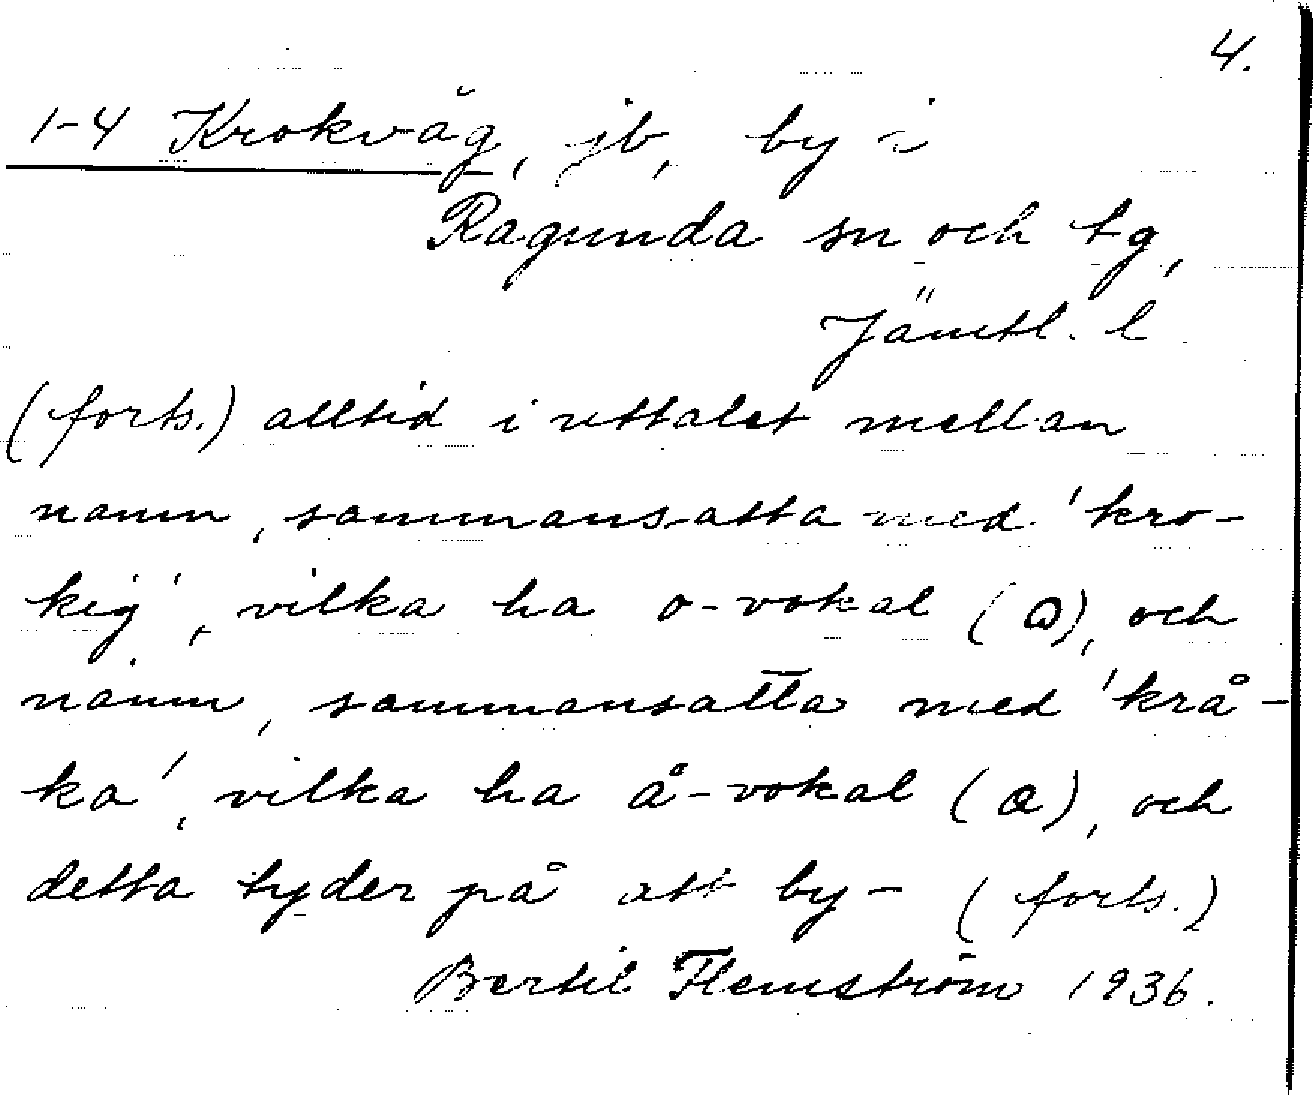 4.
1-4 Krokvåg, jb, by i
Ragunda sn och tg,
Jämtl. l
(forts.) alltid i uttalet mellan
namn, sammansatta med 'kro-
kig', vilka ha o-vokal (ω), och
namn, sammansatta med 'krå-
ka', vilka ha å-vokal (a), och
detta tyder på att by- (forts.)
Bertil Flemström 1936.